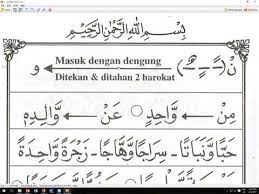 بِسْمِ اللهِ الرَّحْمٰنِ الرَّحِيْمِ
نْ ( ـً ـٍ ـٌ ) Masuk dengan dengung و
Ditekan & ditahan 2 harokat
مِنْ وَّاحِدٍ عَنْ وَّالِدِهِ
حَبًّا وَّنَبَاتًا - سِرَاجًا وَّهَّاجًا - زَجْرَةٌ وَّاحِدَةٌ